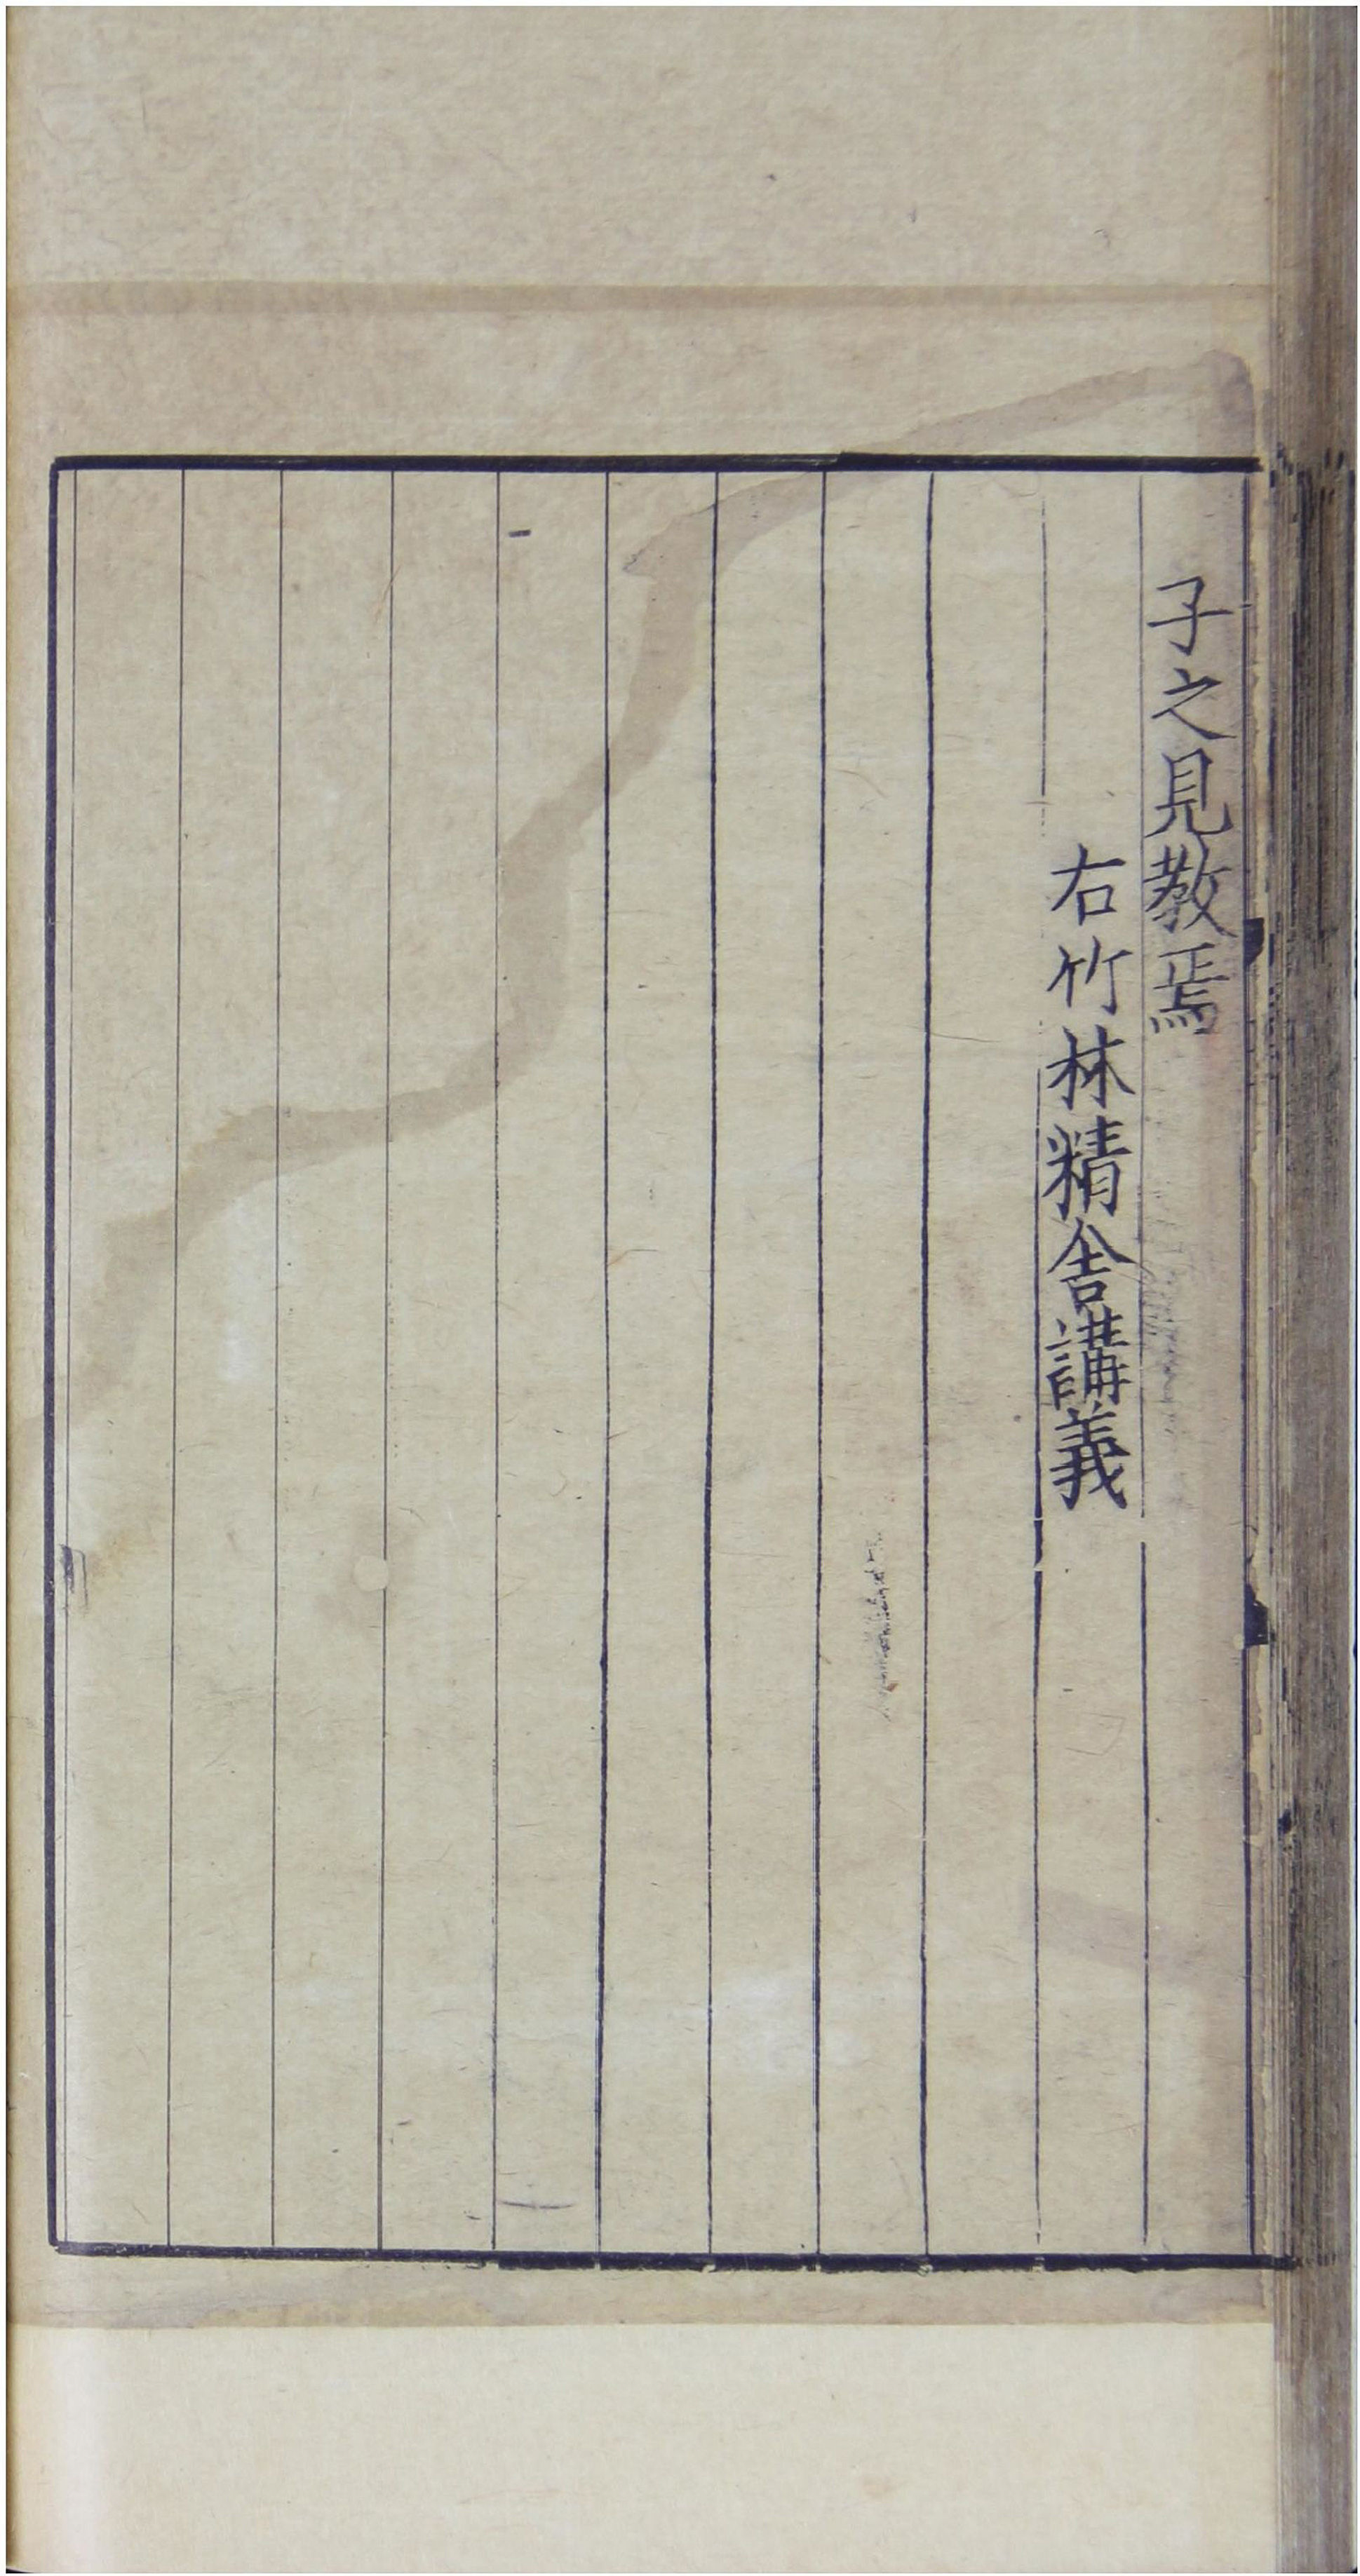 子之見教焉
右竹林精舍講義